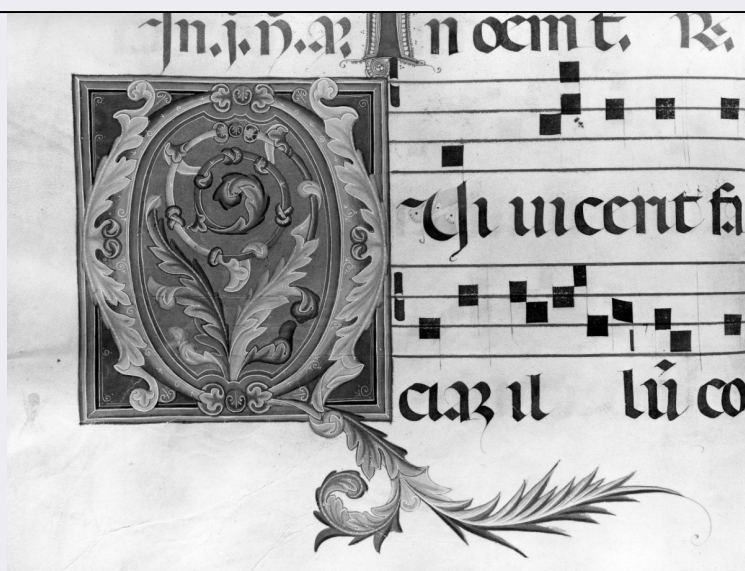 In .j. n̄. aꝝ. In ocm t. R.
QUi uicerit fa
ciaꝫ il lū co